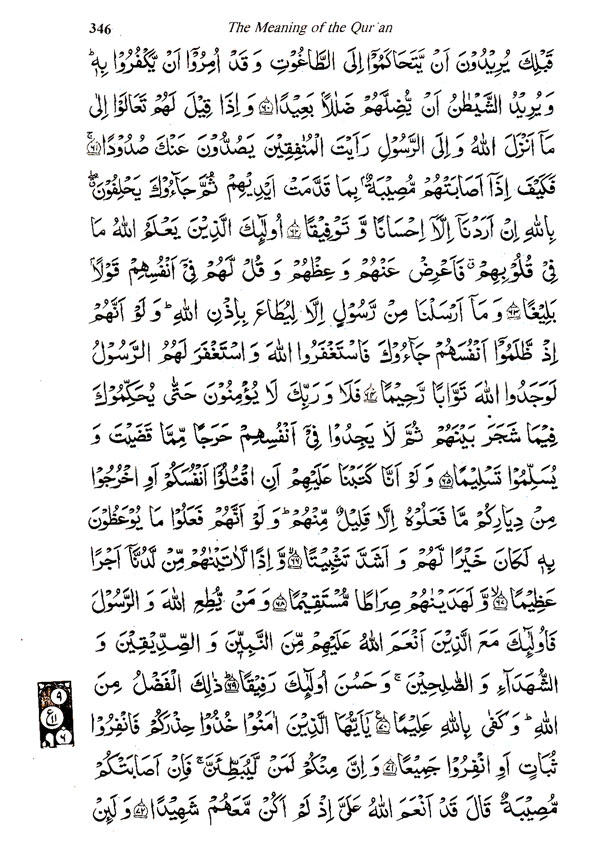 346 The Meaning of the Qur'an
قَبْلِكَ يُرِيْدُوْنَ اَنْ يَّتَحَاكَمُوْٓا اِلَى الطَّاغُوْتِ وَ قَدْ اُمِرُوْٓا اَنْ يَّكْفُرُوْا بِهٖ ؕ
وَ يُرِيْدُ الشَّيْطٰنُ اَنْ يُّضِلَّهُمْ ضَلٰلًاۢ بَعِيْدًا ﴿٦٠﴾ وَ اِذَا قِيْلَ لَهُمْ تَعَالَوْا اِلٰى
مَآ اَنْزَلَ اللّٰهُ وَ اِلَى الرَّسُوْلِ رَاَيْتَ الْمُنٰفِقِيْنَ يَصُدُّوْنَ عَنْكَ صُدُوْدًا ﴿٦١﴾ۚ
فَكَيْفَ اِذَآ اَصَابَتْهُمْ مُّصِيْبَةٌۢ بِمَا قَدَّمَتْ اَيْدِيْهِمْ ثُمَّ جَآءُوْكَ يَحْلِفُوْنَ ۖۗ
بِاللّٰهِ اِنْ اَرَدْنَآ اِلَّآ اِحْسَانًا وَّ تَوْفِيْقًا ﴿٦٢﴾ اُولٰٓئِكَ الَّذِيْنَ يَعْلَمُ اللّٰهُ مَا
فِيْ قُلُوْبِهِمْ ۗ فَاَعْرِضْ عَنْهُمْ وَ عِظْهُمْ وَ قُلْ لَّهُمْ فِيْٓ اَنْفُسِهِمْ قَوْلًۢا
بَلِيْغًا ﴿٦٣﴾ وَ مَآ اَرْسَلْنَا مِنْ رَّسُوْلٍ اِلَّا لِيُطَاعَ بِاِذْنِ اللّٰهِ ؕ وَ لَوْ اَنَّهُمْ
اِذْ ظَّلَمُوْٓا اَنْفُسَهُمْ جَآءُوْكَ فَاسْتَغْفَرُوا اللّٰهَ وَ اسْتَغْفَرَ لَهُمُ الرَّسُوْلُ
لَوَجَدُوا اللّٰهَ تَوَّابًا رَّحِيْمًا ﴿٦٤﴾ فَلَا وَ رَبِّكَ لَا يُؤْمِنُوْنَ حَتّٰى يُحَكِّمُوْكَ
فِيْمَا شَجَرَ بَيْنَهُمْ ثُمَّ لَا يَجِدُوْا فِيْٓ اَنْفُسِهِمْ حَرَجًا مِّمَّا قَضَيْتَ وَ
يُسَلِّمُوْا تَسْلِيْمًا ﴿٦٥﴾ وَ لَوْ اَنَّا كَتَبْنَا عَلَيْهِمْ اَنِ اقْتُلُوْٓا اَنْفُسَكُمْ اَوِ اخْرُجُوْا
مِنْ دِيَارِكُمْ مَّا فَعَلُوْهُ اِلَّا قَلِيْلٌ مِّنْهُمْ ؕ وَ لَوْ اَنَّهُمْ فَعَلُوْا مَا يُوْعَظُوْنَ
بِهٖ لَكَانَ خَيْرًا لَّهُمْ وَ اَشَدَّ تَثْبِيْتًا ﴿٦٦﴾ وَّ اِذًا لَّاٰتَيْنٰهُمْ مِّنْ لَّدُنَّاۤ اَجْرًا
عَظِيْمًا ﴿٦٧﴾ۙ وَّ لَهَدَيْنٰهُمْ صِرَاطًا مُّسْتَقِيْمًا ﴿٦٨﴾ وَ مَنْ يُّطِعِ اللّٰهَ وَ الرَّسُوْلَ
فَاُولٰٓئِكَ مَعَ الَّذِيْنَ اَنْعَمَ اللّٰهُ عَلَيْهِمْ مِّنَ النَّبِيّٖنَ وَ الصِّدِّيْقِيْنَ وَ
الشُّهَدَآءِ وَ الصّٰلِحِيْنَ ۚ وَ حَسُنَ اُولٰٓئِكَ رَفِيْقًا ﴿٦٩﴾ؕ ذٰلِكَ الْفَضْلُ مِنَ
اللّٰهِ ؕ وَ كَفٰى بِاللّٰهِ عَلِيْمًا ﴿٧٠﴾ يٰٓاَيُّهَا الَّذِيْنَ اٰمَنُوْا خُذُوْا حِذْرَكُمْ فَانْفِرُوْا
ثُبَاتٍ اَوِ انْفِرُوْا جَمِيْعًا ﴿٧١﴾ وَ اِنَّ مِنْكُمْ لَمَنْ لَّيُبَطِّئَنَّ ۚ فَاِنْ اَصَابَتْكُمْ
مُّصِيْبَةٌ قَالَ قَدْ اَنْعَمَ اللّٰهُ عَلَيَّ اِذْ لَمْ اَكُنْ مَّعَهُمْ شَهِيْدًا ﴿٧٢﴾ وَ لَئِنْ
٩
ع
٦